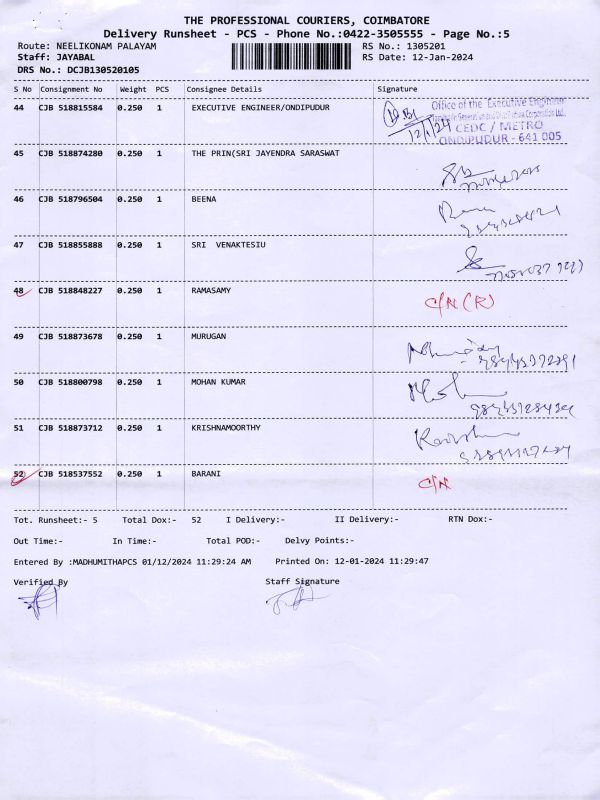 THE PROFESSIONAL COURIERS, COIMBATORE
Delivery Runsheet - PCS - Phone No.:0422-3505555 - Page No.:5
Route: NEELIKONAM PALAYAM RS No.: 1305201
Staff: JAYABAL RS Date: 12-Jan-2024
DRS No.: DCJB130520105
S No Consignment No Weight PCS Consignee Details Signature
44 CJB 518815584 0.250 1 EXECUTIVE ENGINEER/ONDIPUDUR
Office of the Executive Engineer
12/1/24 CEDC / METRO
ONDIPUDUR - 641 005
45 CJB 518874280 0.250 1 THE PRIN(SRI JAYENDRA SARASWAT
46 CJB 518796504 0.250 1 BEENA
47 CJB 518855888 0.250 1 SRI VENAKTESIU
48 CJB 518848227 0.250 1 RAMASAMY C/N (R)
49 CJB 518873678 0.250 1 MURUGAN
50 CJB 518800798 0.250 1 MOHAN KUMAR
51 CJB 518873712 0.250 1 KRISHNAMOORTHY
52 CJB 518537552 0.250 1 BARANI C/N
Tot. Runsheet:- 5 Total Dox:- 52 I Delivery:- II Delivery:- RTN Dox:-
Out Time:- In Time:- Total POD:- Delvy Points:-
Entered By :MADHUMITHAPCS 01/12/2024 11:29:24 AM Printed On: 12-01-2024 11:29:47
Verified By Staff Signature